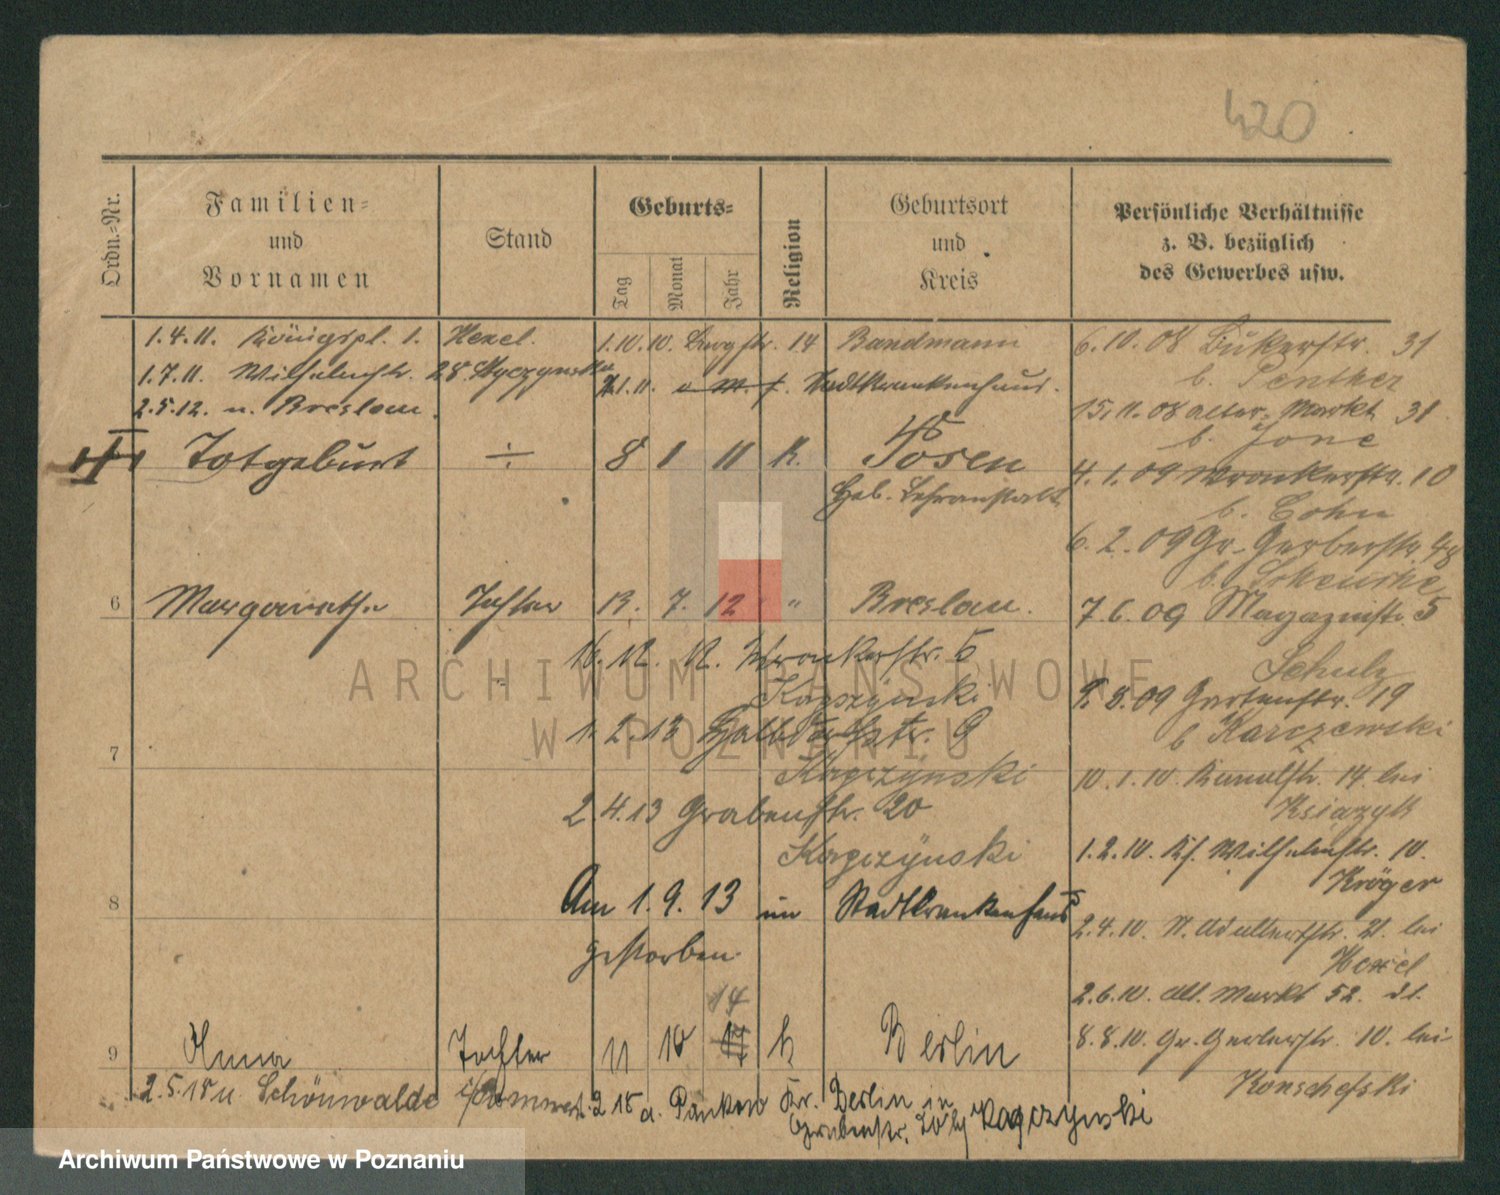 420
Ordn.-Nr.
Familien-
und
Vornamen
Stand
Geburts-
Tag
Monat
Jahr
Religion
Geburtsort
und
Kreis
Persönliche Verhältnisse
z. B. bezüglich
des Gewerbes usw.
1.4.11. Königspl. 1. Hexel.
1.7.11. Wilhelmstr. 28.
2.5.12. n. Breslau.
1.10.10. Burgstr. 14 Bandmann
Stadtkrankenhaus.
Totgeburt ÷ 8 1 11 k. Posen
Heb. Lehranstalt
6 Margarethe Tochter 13. 7. 12 " Breslau.
16.12.12. Wronkerstr. 5
Kapczynski
1.2.13 Halbdorfstr. 9
Kapczynski
7
2.4.13 Grabenstr. 20
Kapczynski
8
Am 1.9.13 im Stadtkrankenhaus
gestorben
14
9 Anna Tochter 11 10 k Berlin
2.5.15 n. Schönwalde
a. Pankow Kr. Berlin in
Grabenstr. 20 bj Kapczynski
6.10.08 Bukerstr. 31
b. Penther
15.11.08 alter Markt 31
b. Jone
4.1.09 Wronkerstr. 10
b. Cohn
6.2.09 Gr. Gerberstr. 48
7.6.09 Magazinstr. 5
Schulz
9.8.09 Gartenstr. 19
b Karczewski
10.1.10. Kanalstr. 14. bei
Ksiazyk
1.2.10. Kf. Wilhelmstr. 10.
Kröger
2.4.10. St. Adalbertstr. 21. bei
Hexel
2.6.10. Alt. Markt 52.
8.8.10. Gr. Gerberstr. 10. bei
Konschefski
ARCHIWUM PAŃSTWOWE
W POZNANIU
Archiwum Państwowe w Poznaniu